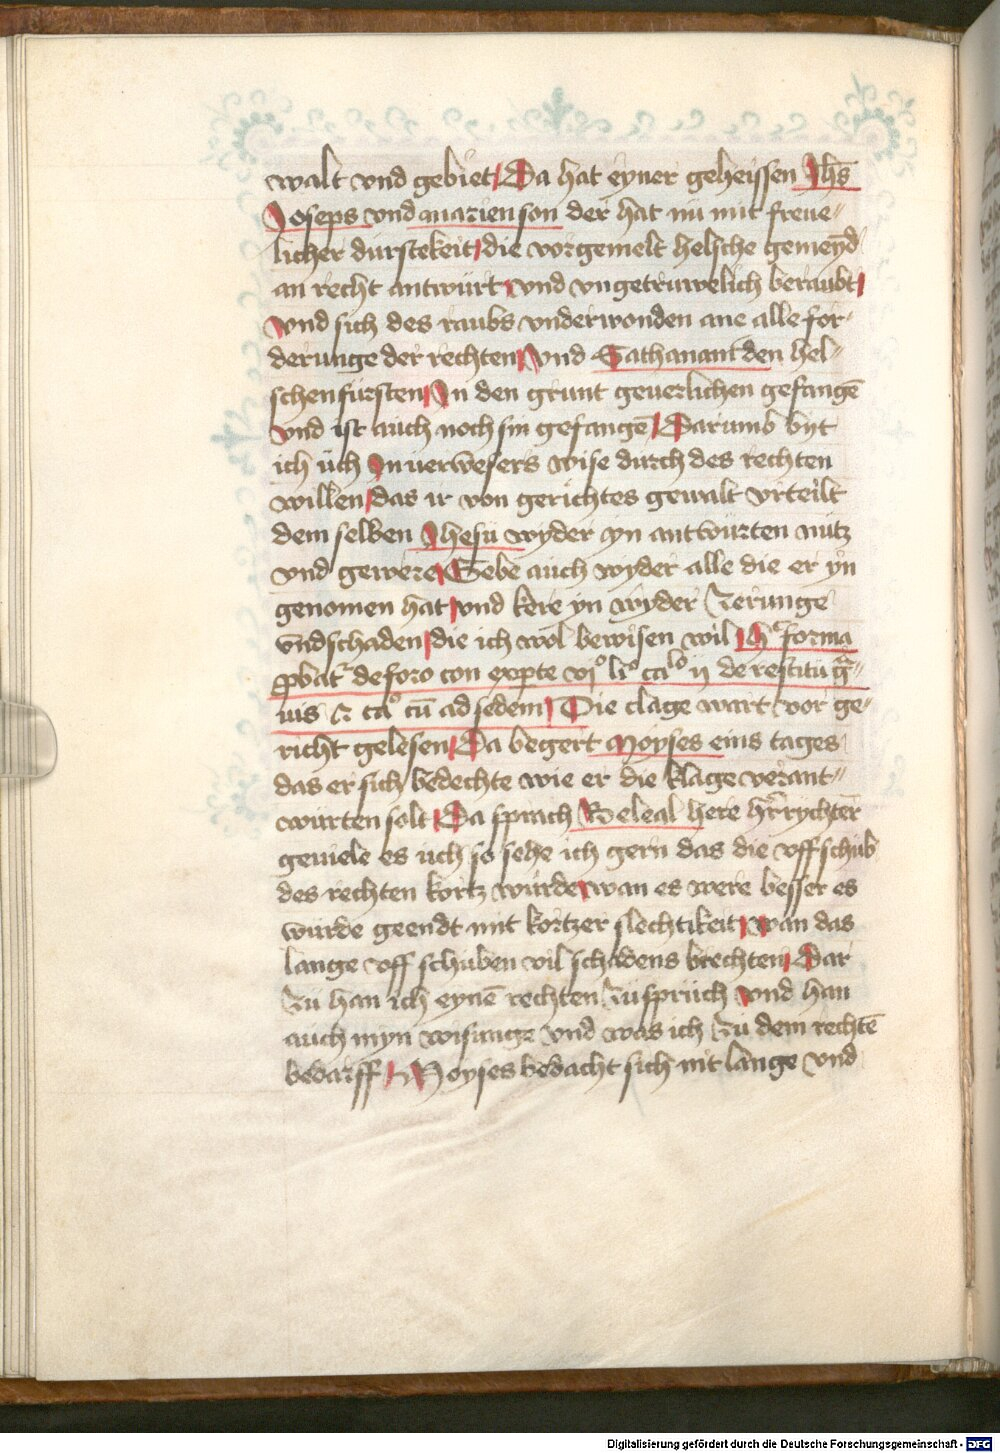 walt vnd gebiet Da hat eyner geheissen Jhs̄
Joseps vnd marien son der hat nu mit freue〃
licher durstekeit die vorgemelt helsche gemeynd
an recht antwurt vnd vngetruwelich beraubt
vnd sich des raubs vnderwonden ane alle for〃
derunge der rechten Vnd Sathanam den hel〃
schen fursten In den grunt geuerlichen gefangē
vnd ist auch noch sin gefangē Darumb byt
ich uch In uerwesers wise durch des rechten
willen das ir von gerichtes gewalt vrteilt
dem selben Jhesu wyder yn antwurten nutz
vnd gewere Gebe auch wyder alle die er yn
genomen hat vnd kere yn wyder Zerunge
vnd schaden die ich wol bewisen wil forma
de foro con vjº liº caºlo ij de restitu
uis caº cū ad sedem Die clage wart vor ge〃
richt gelesen Da begert Moyses eins tages
das er sich bedechte wie er die klage verant〃
wurten solt Da sprach Beleal here rychter
geuiele es uch so sehe ich gern das die vffschub
des rechten kortz wurde wan es were besser es
wurde geendt mit kortzer slechtikeit wan das
lange vff schuben vil schadens brechten Dar
Zu han ich eynē rechten Zuspruch vnd han
auch myn wisunge vnd was ich Zu dem rechtē
bedarff Moyses bedacht sich nit lange vnd
Digitalisierung gefördert durch die Deutsche Forschungsgemeinschaft - DFG